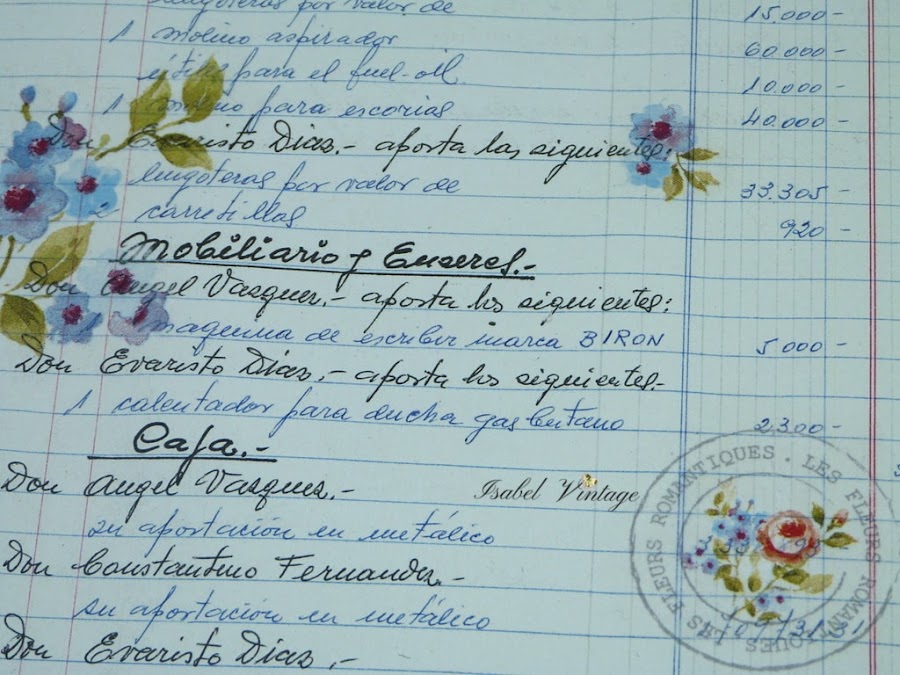 lingoteras por valor de 15.000-
1 molino aspirador 60.000-
útiles para el fuel-oil 10.000-
1 molino para escorias 40.000-
Don Evaristo Diaz.- aporta las siguientes:
lingoteras por valor de 33.305-
2 carretillas 920-
Mobiliario y Enseres.-
Don Angel Vasquez.- aporta los siguientes:
1 maquina de escribir marca BIRON 5000-
Don Evaristo Diaz.- aporta los siguientes.-
1 calentador para ducha gas butano 2,300-
Caja.-
Don Angel Vasquez.-
Isabel Vintage
su aportación en metálico
Don Constantino Fernandez.-
su aportación en metálico
Don Evaristo Diaz.-
LES FLEURS ROMANTIQUES · LES FLEURS ROMANTIQUES